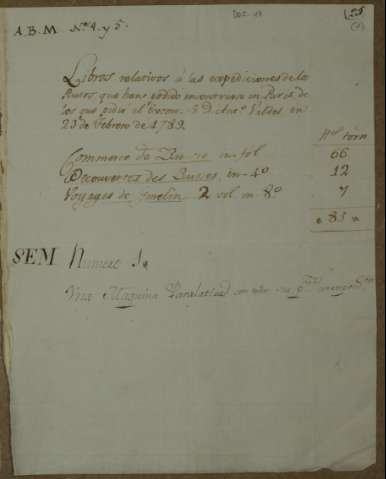 DOC. 18
125
(1)
A.B.M. Nos. 4. y 5.
Libros relativos à las expediciones de los
Rusos que han podido encontrarse en Paris, de
los que pidió el Excmo. Sr. D. Anto. Valdes en
23 de Febrero de 1789.
torn
Commerce de Russie in fol 66
Decouvertes des Russes, in 4º 12
Voyages de Gmelin 2 vol in 8º 7
85
SEM Numero 1
Una Maquina Paralatica con